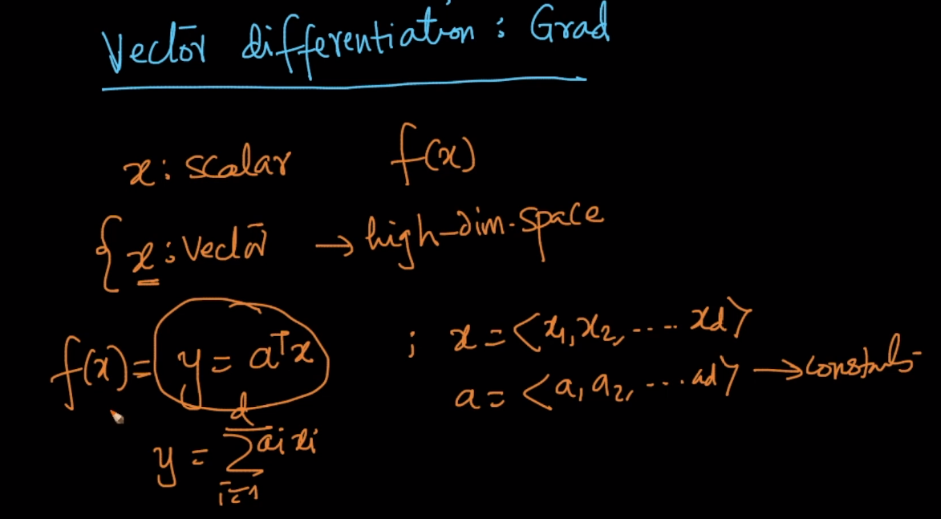 Vector differentiation : Grad
x : scalar f(x)
{ x : vector → high-dim. space
f(x) = y = aᵀx ; x = <x₁, x₂, .... xd>
a = <a₁ a₂, ... ad> → constants
y = Σᵢ₌₁ᵈ aᵢ xᵢ